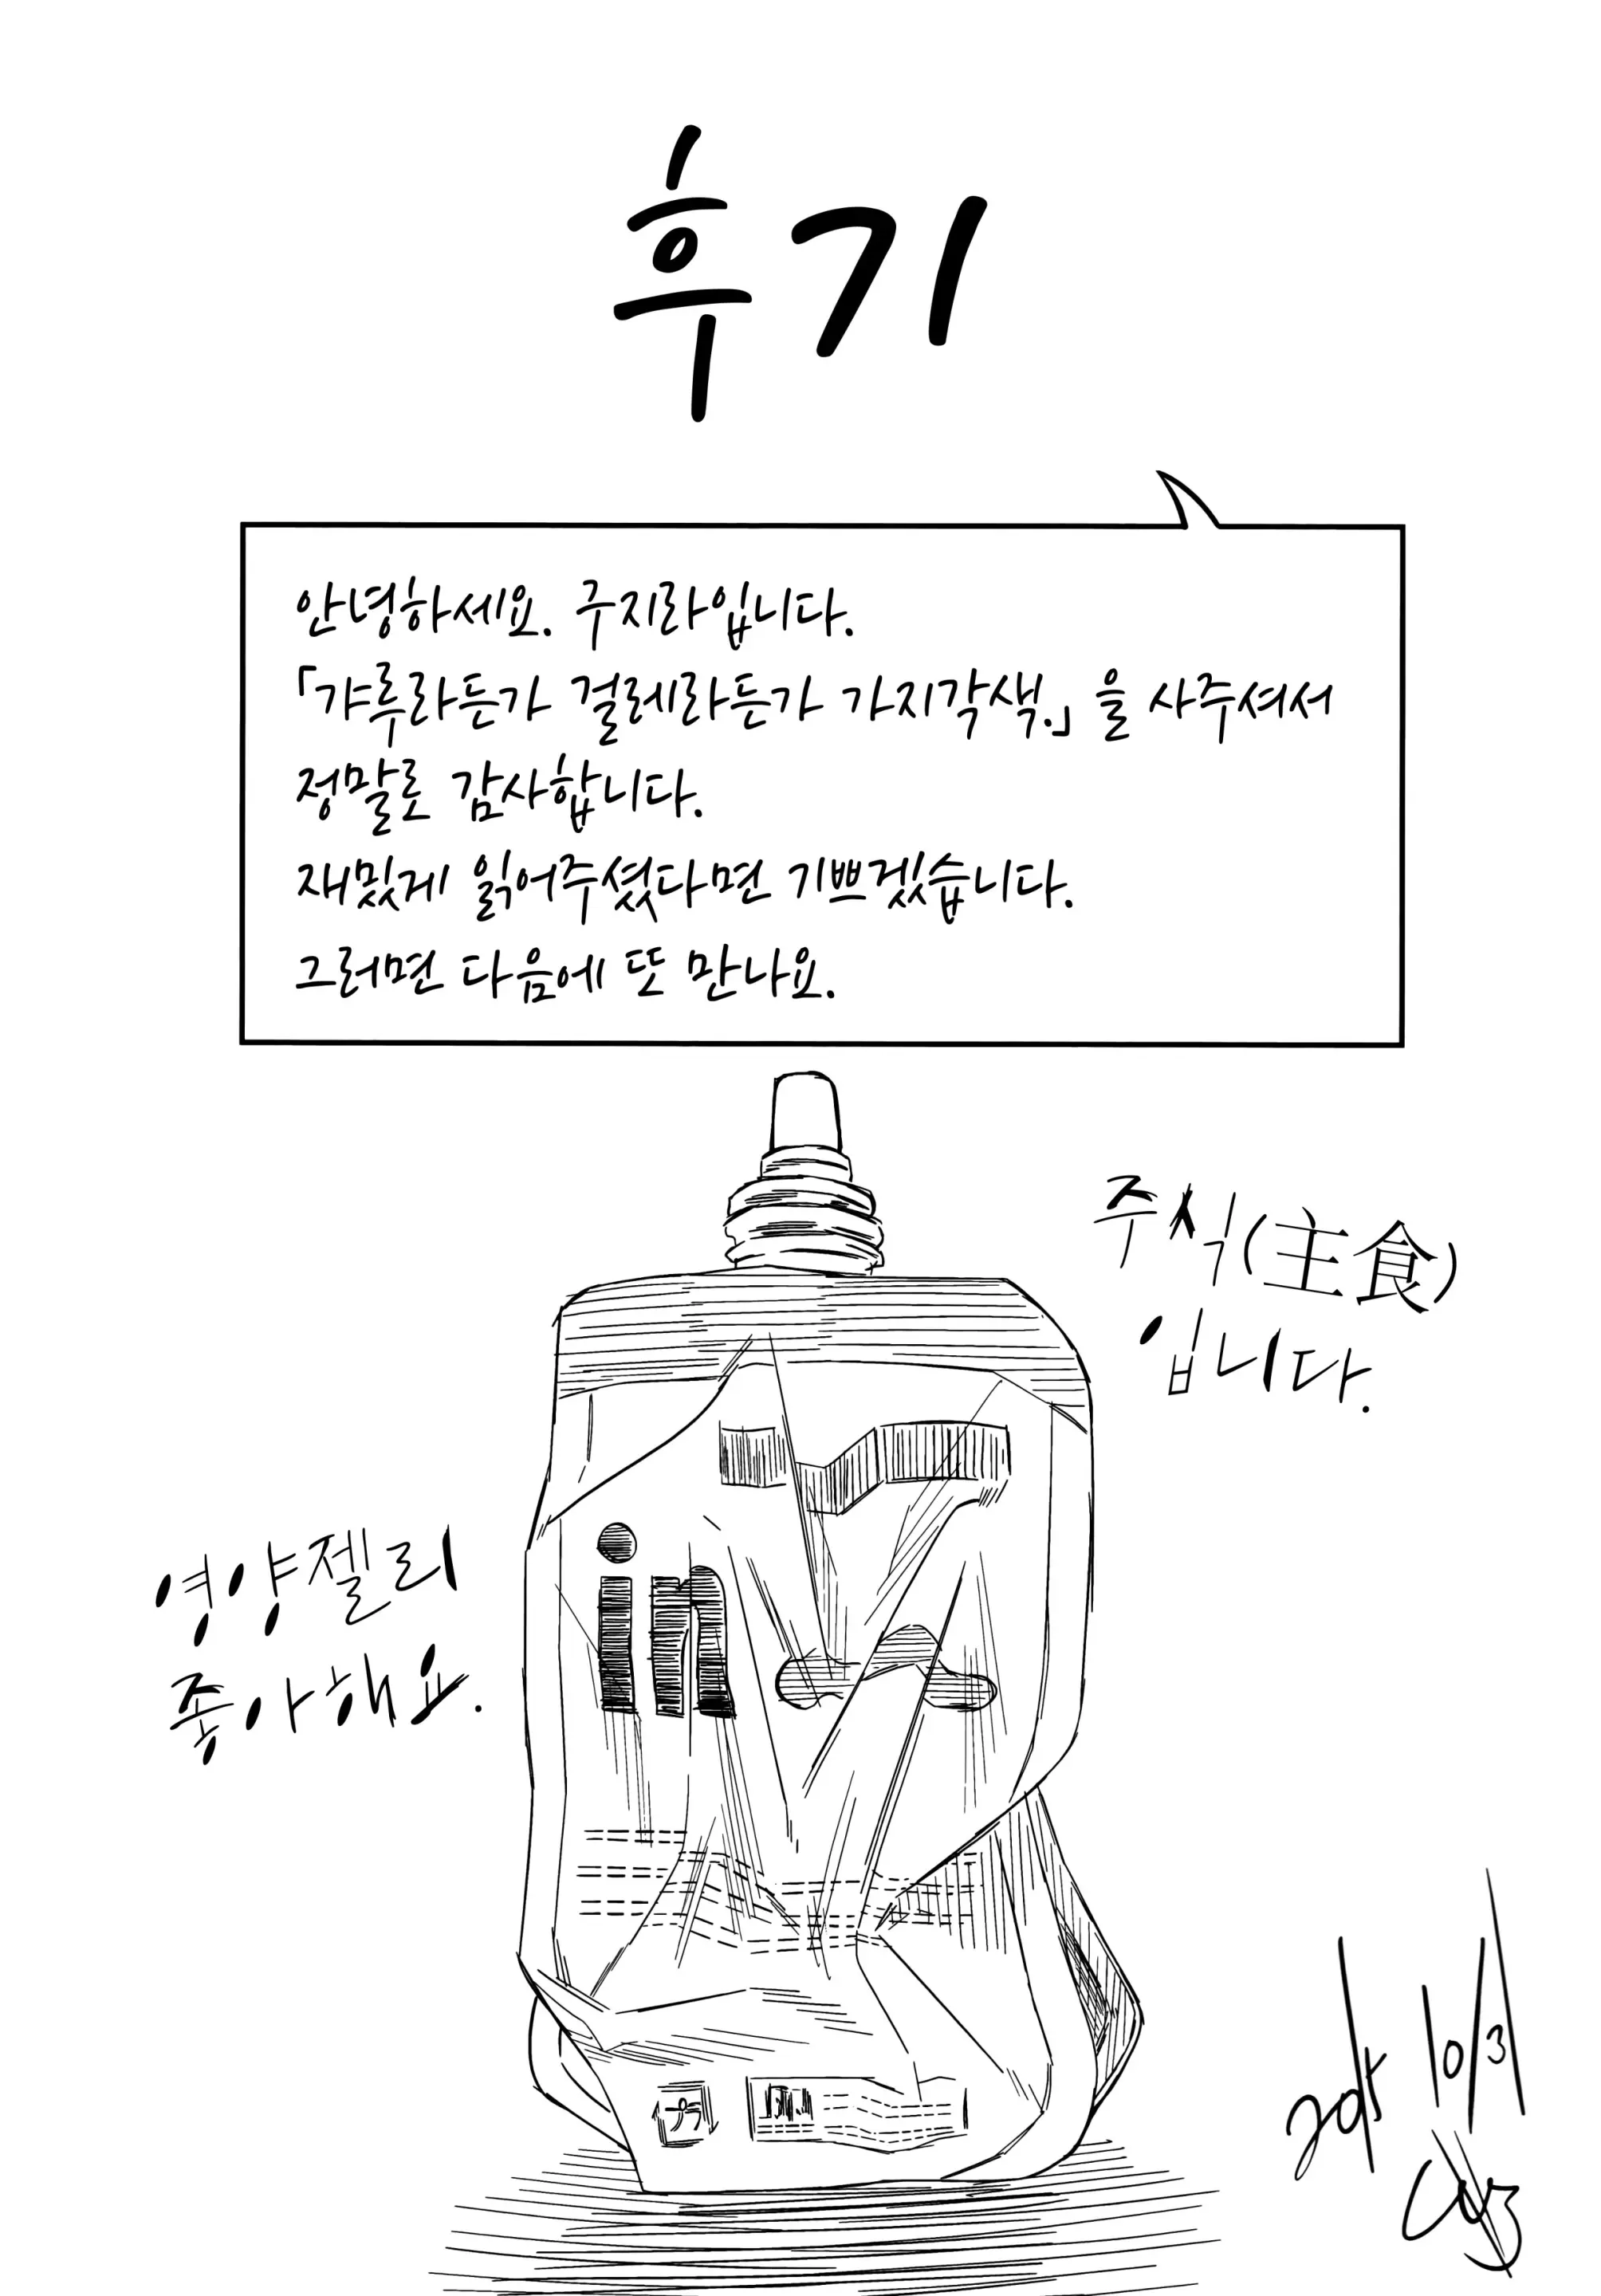 후기
안녕하세요. 주지라입니다.
「갸루라든가 걸레라든가 가지각색.」을 사주셔서
정말로 감사합니다.
재밌게 읽어주셨다면 기쁘겠습니다.
그러면 다음에 또 만나요.
주식(主食)
입니다.
영양젤리
좋아해요.
in